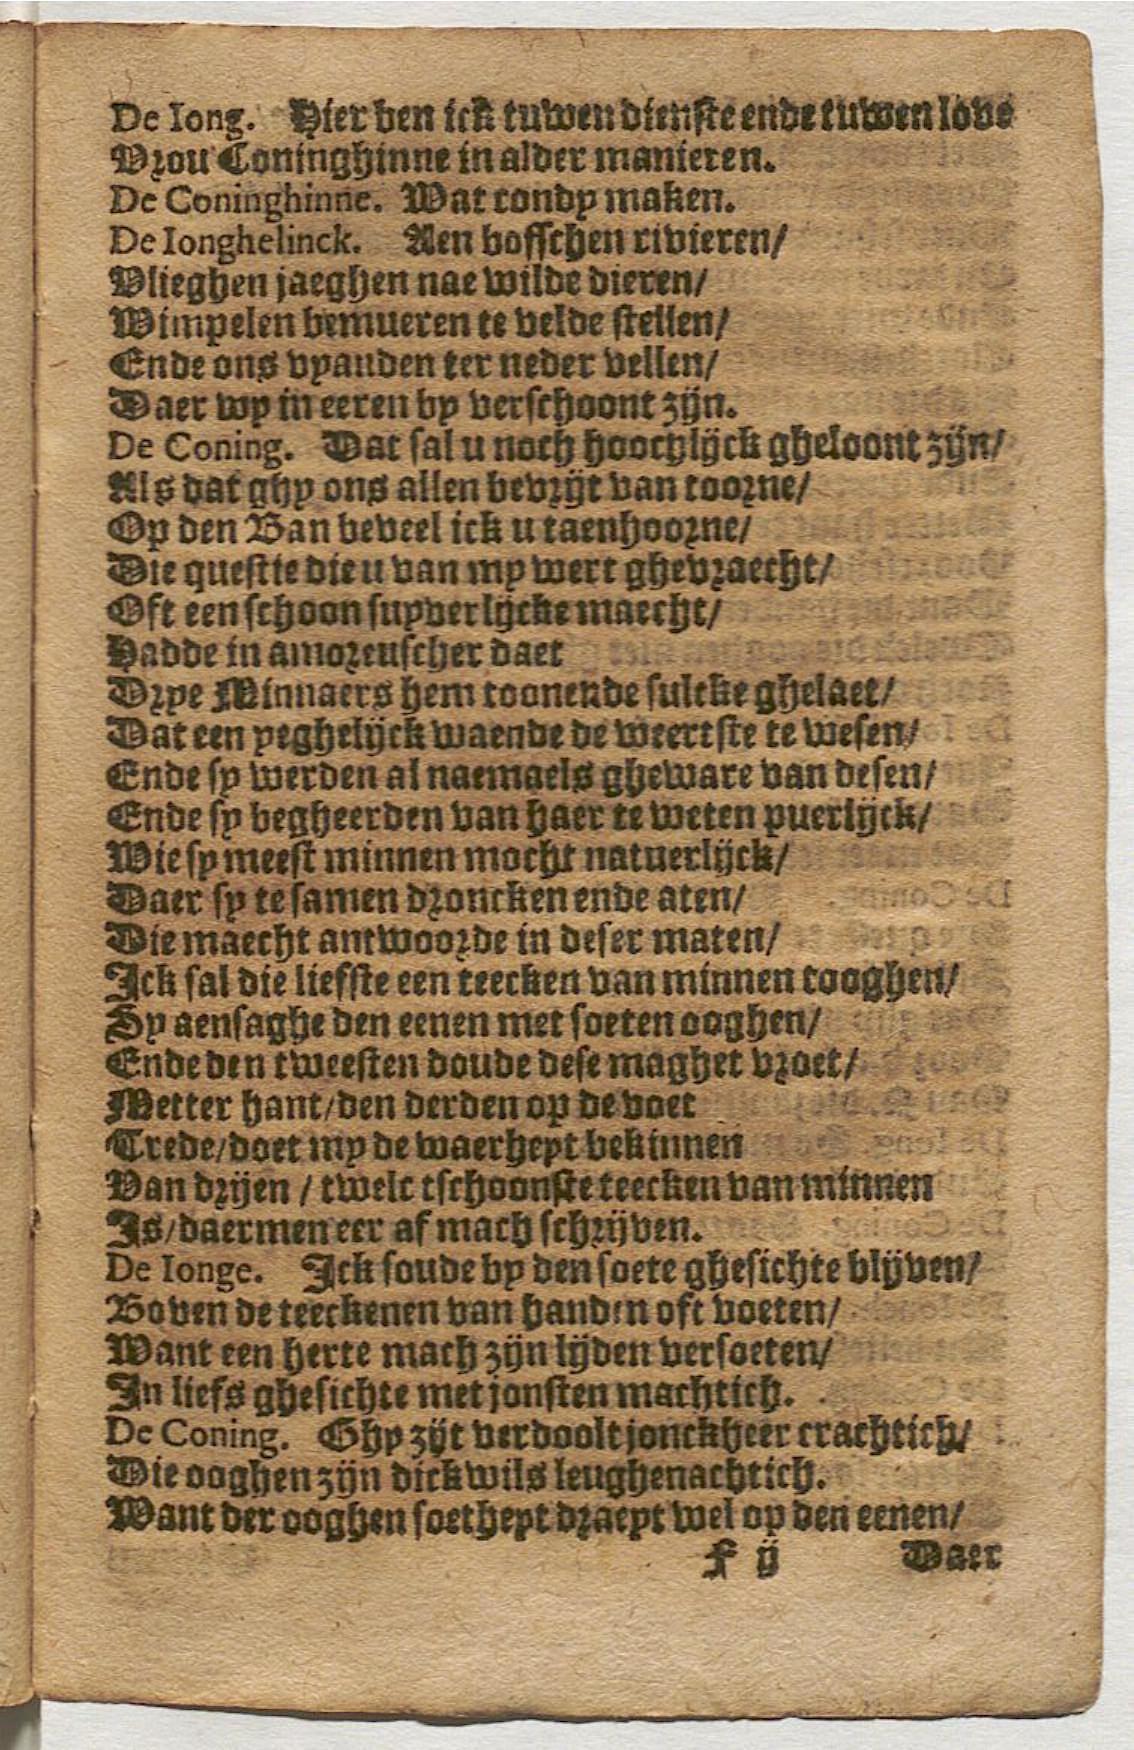 De Iong. Hier ben ick tuwen dienste ende tuwen love
Vrou Coninghinne in alder manieren.
De Coninghinne. Wat condy maken.
De Ionghelinck. Aen bosschen rivieren/
Vlieghen jaeghen nae wilde dieren/
Wimpelen bemueren te velde stellen/
Ende ons vyanden ter neder vellen/
Daer wy in eeren by verschoont zijn.
De Coning. Dat sal u noch hoochlijck gheloont zijn/
Als dat ghy ons allen bevrijt van toorne/
Op den Ban beveel ick u taenhoorne/
Die questie die u van my wert ghevraecht/
Oft een schoon suyverlijcke maecht/
Hadde in amoreuscher daet
Drye Minnaers hem toonende sulcke ghelaet/
Dat een yeghelijck waende de weertste te wesen/
Ende sy werden al naemaels gheware van desen/
Ende sy begheerden van haer te weten puerlijck/
Wie sy meest minnen mocht natuerlijck/
Daer sy te samen droncken ende aten/
Die maecht antwoorde in deser maten/
Ick sal die liefste een teecken van minnen tooghen/
Sy aensaghe den eenen met soeten ooghen/
Ende den tweesten doude dese maghet vroet/
Metter hant/den derden op de voet
Trede/doet my de waerheyt bekinnen
Van drijen / twelc tschoonste teecken van minnen
Is/daermen eer af mach schrijven.
De Ionge. Ick soude by den soete ghesichte blijven/
Boven de teeckenen van handen oft voeten/
Want een herte mach zijn lijden versoeten/
In liefs ghesichte met jonsten machtich.
De Coning. Ghy zijt verdoolt jonckheer crachtich/
Die ooghen zijn dickwils leughenachtich.
Want der ooghen soetheyt draeyt wel op den eenen/
F ij Daer